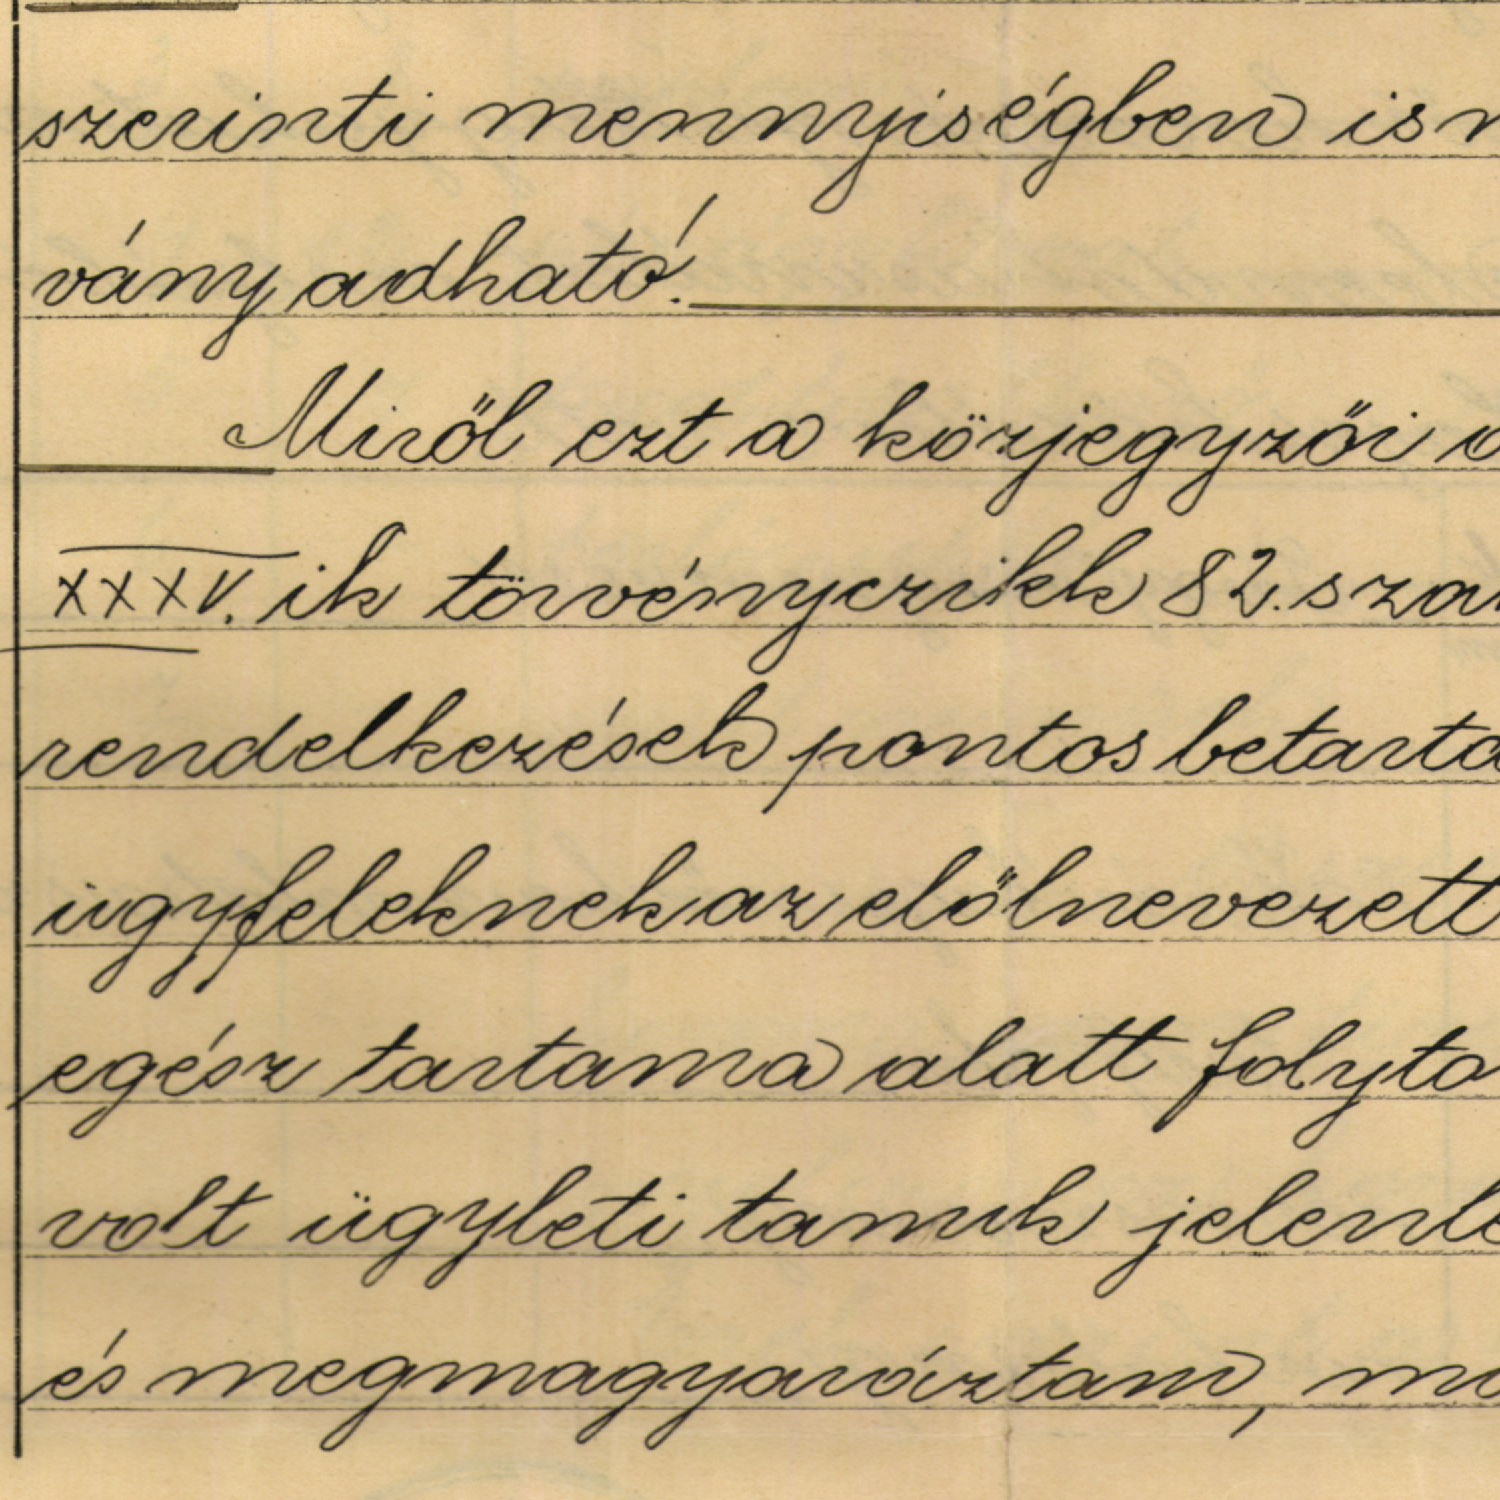 szerinti mennyiségben is
vány adható.
Miről ezt a közjegyzői
XXXV. ik törvényczikk 82. sza
rendelkezések pontos betarta
ügyfeleknek az előlnevezett
egész tartama alatt folyto
volt ügyleti tanuk jelenlé
és megmagyaráztam, m